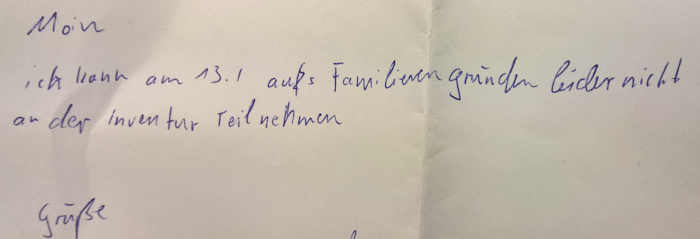 Moin
ich kann am 13.1 aufs Familieren gründen leider nicht
an der Inventur Teil nehmen
Grüße